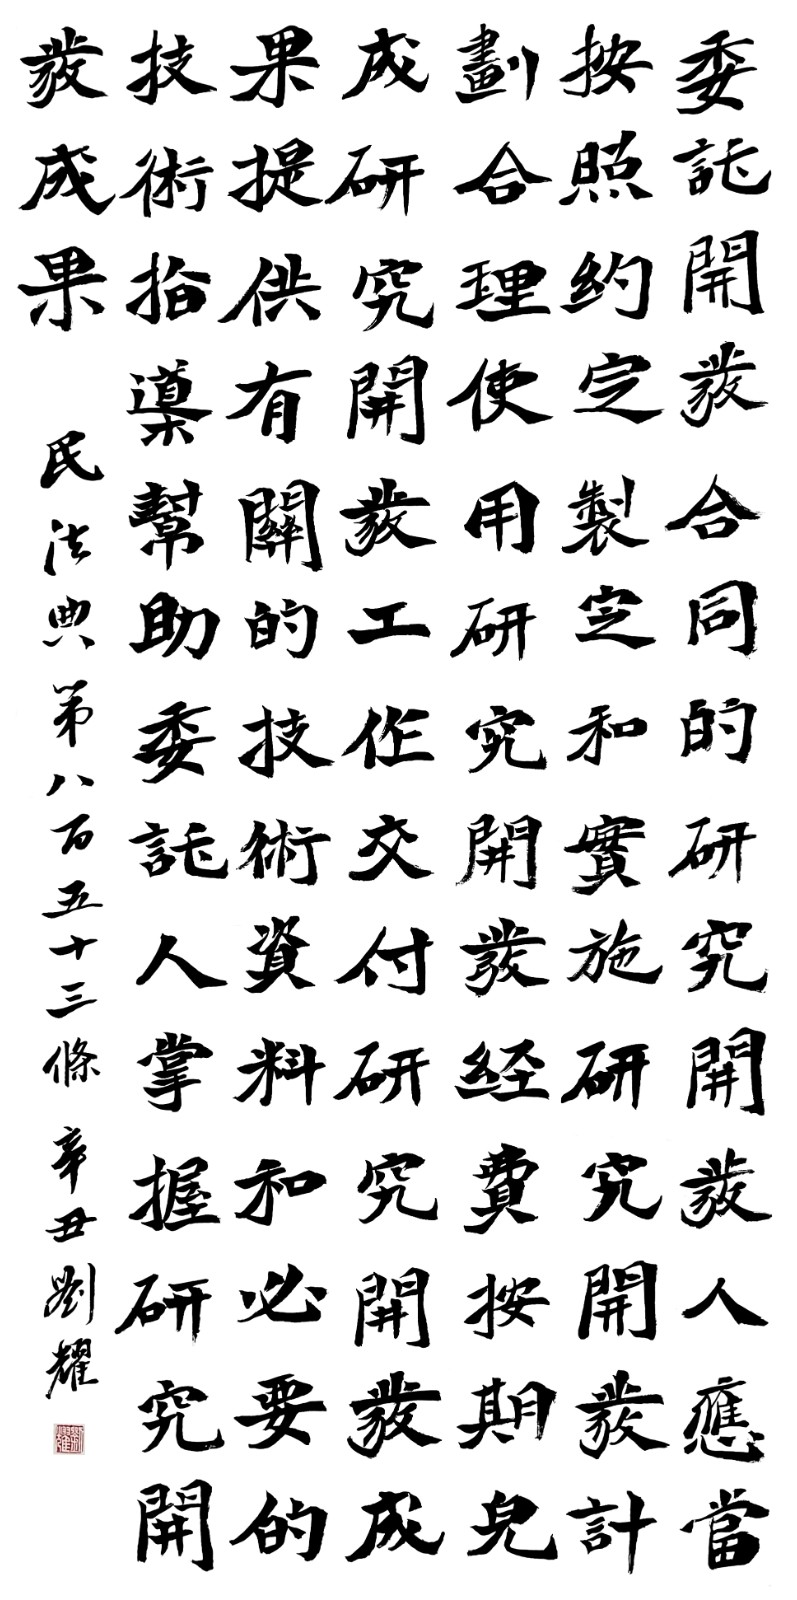 委託開發合同的研究開發人應當
按照約定製定和實施研究開發計
劃合理使用研究開發経費按期兒
成研究開發工作交付研究開發成
果提供有關的技術資料和必要的
技術指導幫助委託人掌握研究開
發成果
民法典第八百五十三條 辛丑劉耀